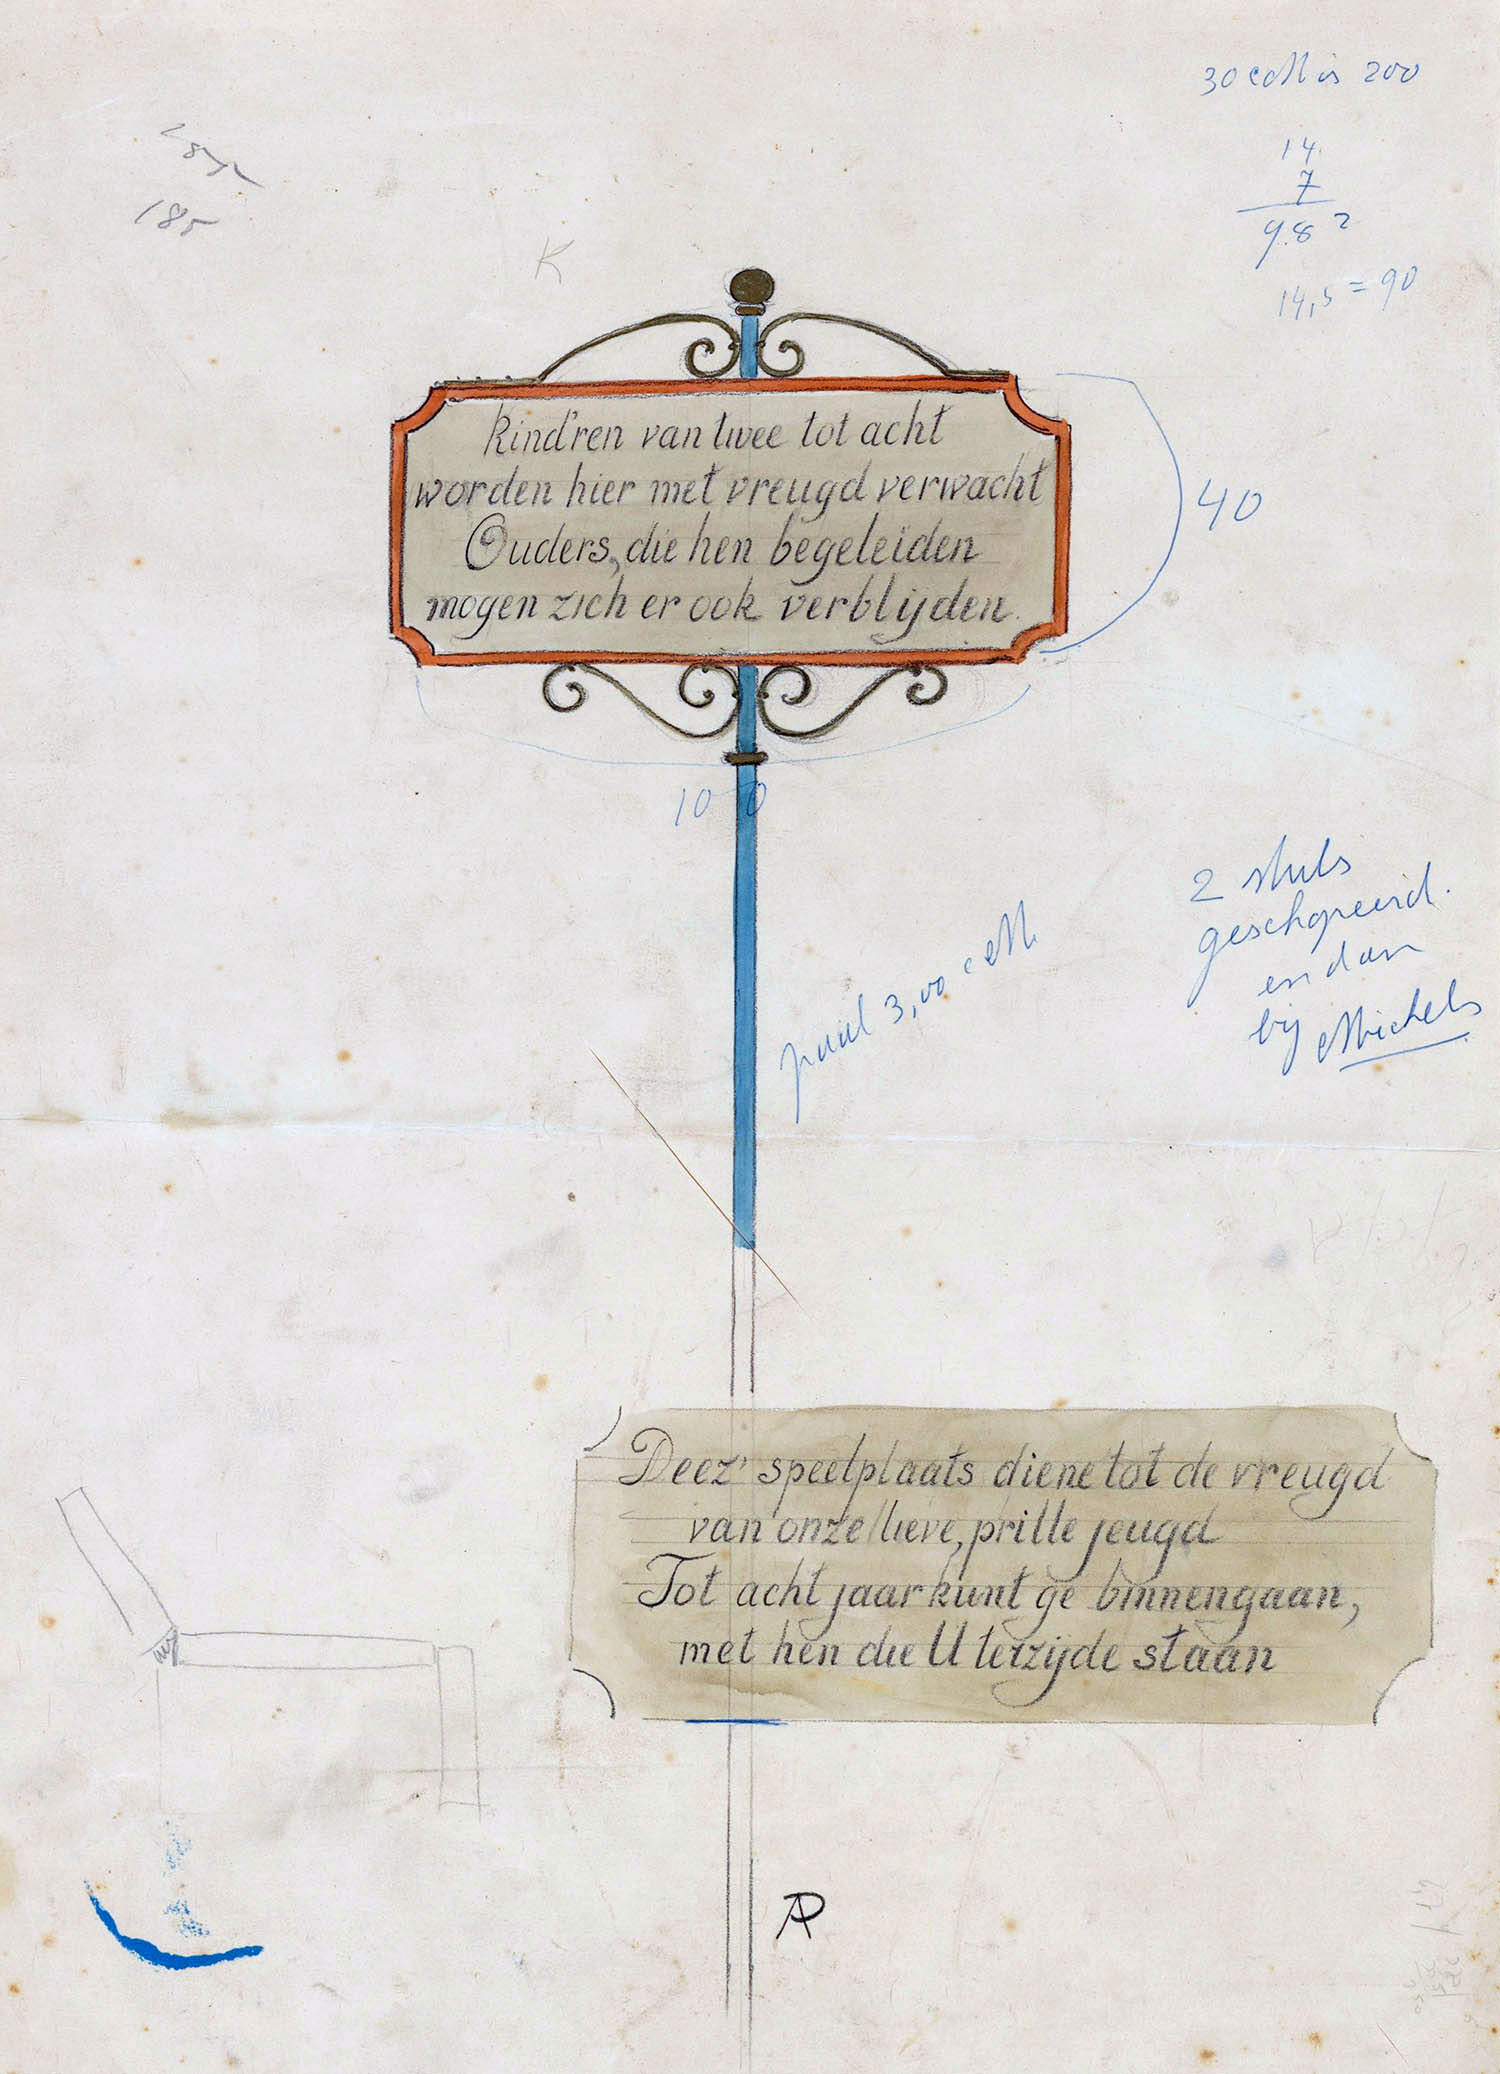 30 cM is 200
14
7
9.8 2
14,5 = 90
185
K
kind'ren van twee tot acht
worden hier met vreugd verwacht
Ouders, die hen begeleiden
mogen zich er ook verblijden.
40
100
2 stuks
geschopeerd.
en dan
bij Michels
paal 3,00 cM.
Deez' speelplaats diene tot de vreugd
van onze lieve, prille jeugd
Tot acht jaar kunt ge binnengaan,
met hen die U terzijde staan
AP